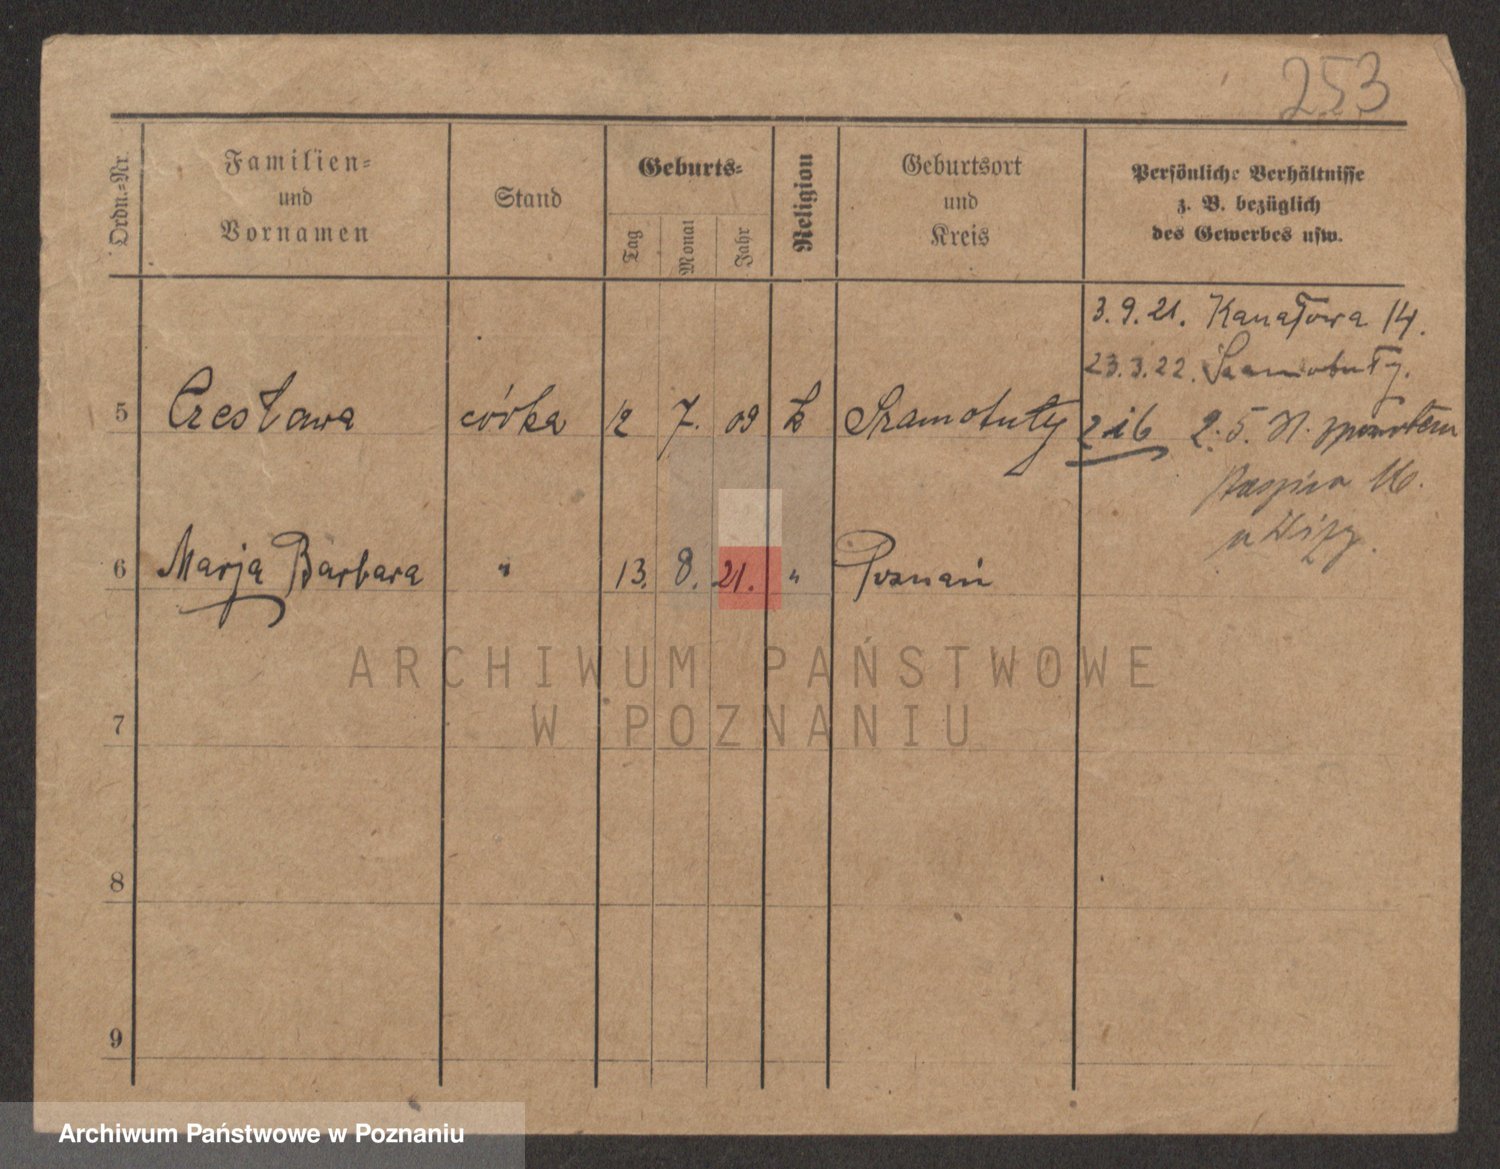 253
Ordn.-Nr.
Familien-
und
Vornamen
Stand
Geburts-
Tag
Monat
Jahr
Religion
Geburtsort
und
Kreis
Persönliche Verhältnisse
z. B. bezüglich
des Gewerbes usw.
3.9.21. Kanałowa 14.
23.3.22. Szamotuły.
5 Czesława córka 12 7. 09 k Szamotuły
2. 5.
6 Marja Barbara " 13. 8. 21. " Poznań
7
8
9
ARCHIWUM PAŃSTWOWE
W POZNANIU
Archiwum Państwowe w Poznaniu